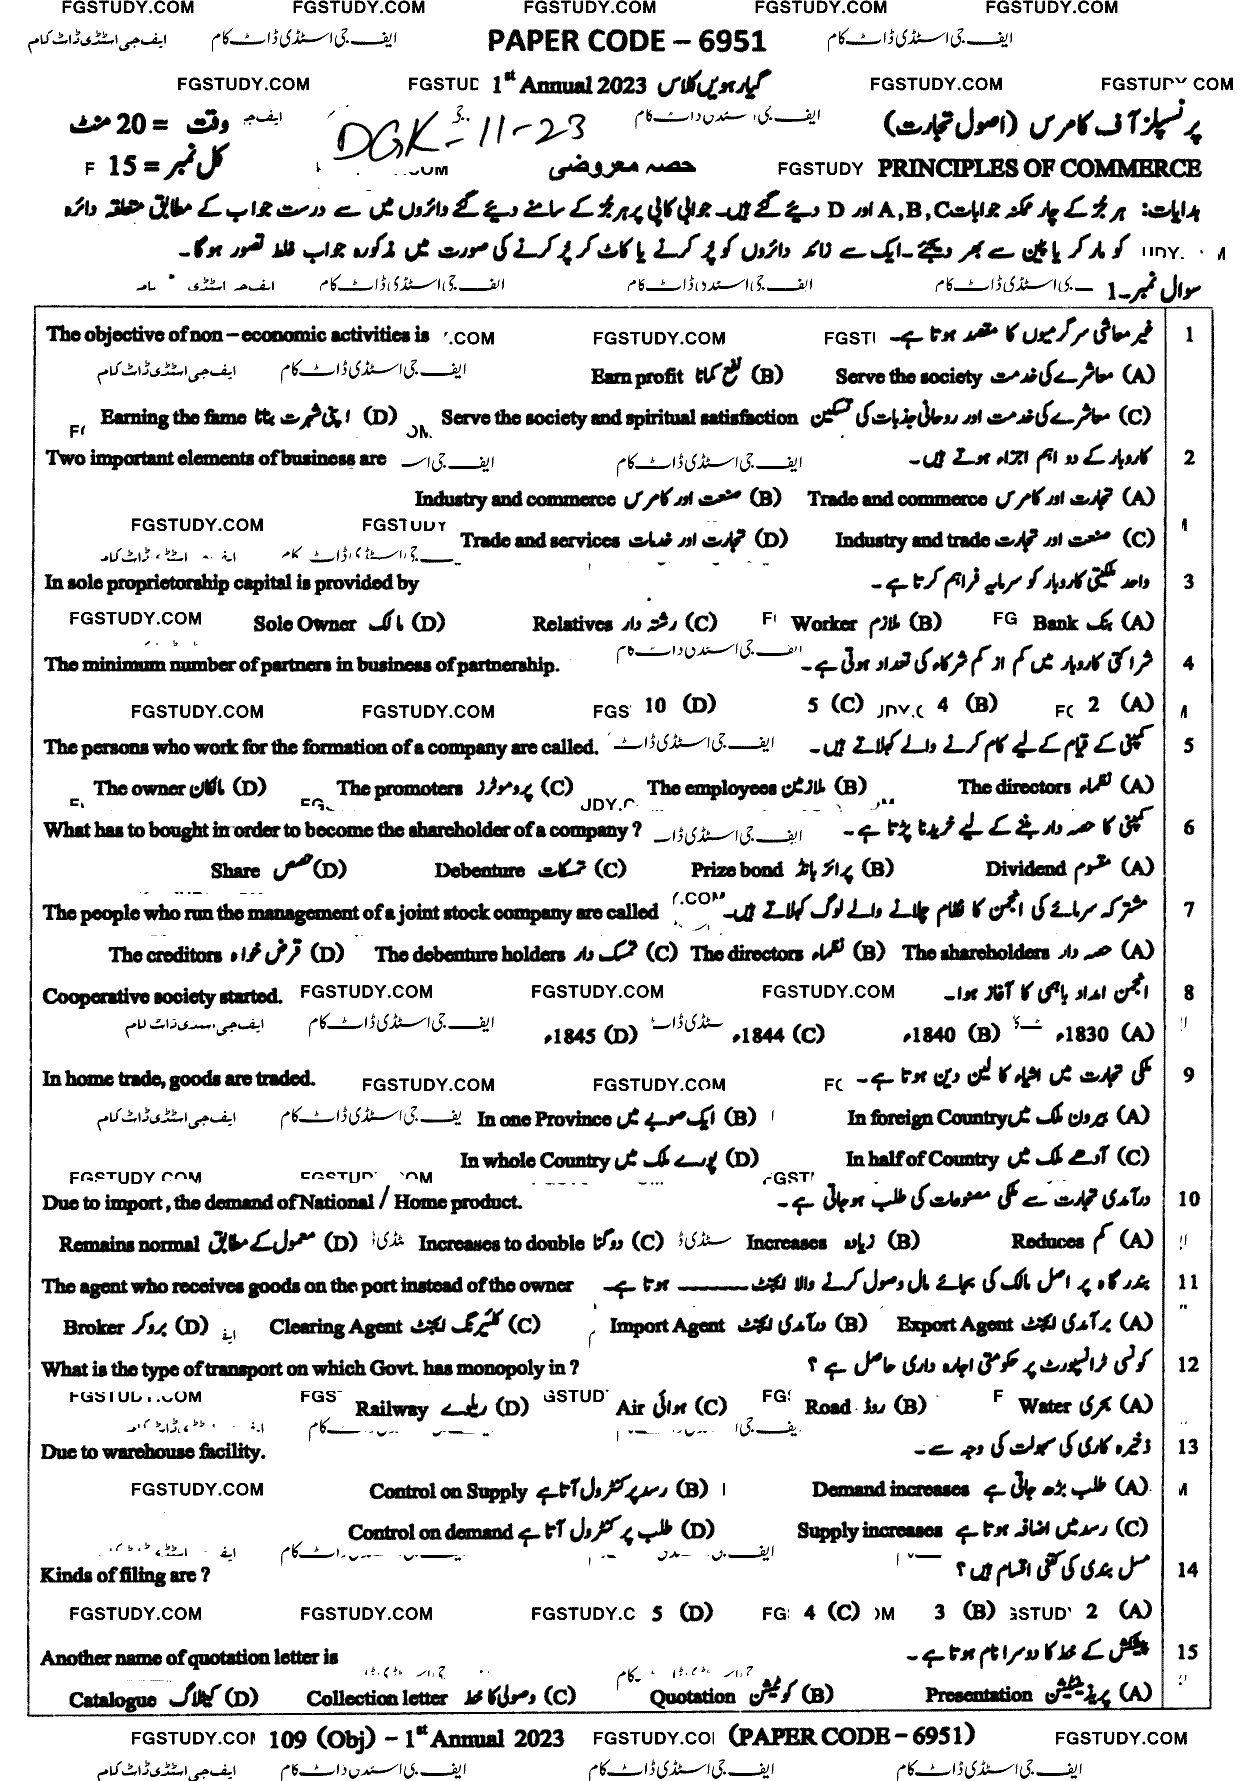 FGSTUDY.COM FGSTUDY.COM FGSTUDY.COM FGSTUDY.COM FGSTUDY.COM
ایف جی اسٹڈی ڈاٹ کام ایف جی اسٹڈی ڈاٹ کام PAPER CODE – 6951 ایف جی اسٹڈی ڈاٹ کام
FGSTUDY.COM 1st Annual 2023 گیارہویں کلاس FGSTUDY.COM
پرنسپلز آف کامرس (اصول تجارت) DGK-11-23 وقت = 20 منٹ
PRINCIPLES OF COMMERCE FGSTUDY حصہ معروضی کل نمبر = 15
ہدایات: ہر جز کے چار ممکنہ جوابات A,B,C اور D دیئے گئے ہیں۔ جوابی کاپی پر ہر جز کے سامنے دیئے گئے دائروں میں سے درست جواب کے مطابق متعلقہ دائرہ
کو مارکر یا پین سے بھر دیجئے۔ ایک سے زائد دائروں کو پُر کرنے یا کاٹ کر پُر کرنے کی صورت میں مذکورہ جواب غلط تصور ہوگا۔
سوال نمبر۔1
1 غیر معاشی سرگرمیوں کا مقصد ہوتا ہے۔ FGSTUDY.COM The objective of non – economic activities is
(A) معاشرے کی خدمت Serve the society (B) نفع کمانا Earn profit
(C) معاشرے کی خدمت اور روحانی جذبات کی تسکین Serve the society and spiritual satisfaction (D) اپنی شہرت بنانا Earning the fame
2 کاروبار کے دو اہم اجزاء ہوتے ہیں۔ Two important elements of business are
(A) تجارت اور کامرس Trade and commerce (B) صنعت اور کامرس Industry and commerce
FGSTUDY.COM
(C) صنعت اور تجارت Industry and trade (D) تجارت اور خدمات Trade and services
3 واحد ملکیتی کاروبار کو سرمایہ فراہم کرتا ہے۔ In sole proprietorship capital is provided by
(A) بنک Bank (B) ملازم Worker (C) رشتہ دار Relatives (D) مالک Sole Owner FGSTUDY.COM
4 شراکتی کاروبار میں کم از کم شرکاء کی تعداد ہوتی ہے۔ The minimum number of partners in business of partnership.
(A) 2 (B) 4 (C) 5 (D) 10 FGSTUDY.COM FGSTUDY.COM
5 کمپنی کے قیام کے لیے کام کرنے والے کہلاتے ہیں۔ The persons who work for the formation of a company are called.
(A) نظماء The directors (B) ملازمین The employees (C) پروموٹرز The promoters (D) مالکان The owner
6 کمپنی کا حصہ دار بننے کے لیے خریدنا پڑتا ہے۔ What has to bought in order to become the shareholder of a company ?
(A) مقسوم Dividend (B) پرائز بانڈ Prize bond (C) تمسکات Debenture (D) حصص Share
7 مشترکہ سرمائے کی انجمن کا نظام چلانے والے لوگ کہلاتے ہیں۔ The people who run the management of a joint stock company are called
(A) حصہ دار The shareholders (B) نظماء The directors (C) تمسک دار The debenture holders (D) قرض خواہ The creditors
8 انجمن امداد باہمی کا آغاز ہوا۔ FGSTUDY.COM FGSTUDY.COM FGSTUDY.COM Cooperative society started.
(A) 1830ء (B) 1840ء (C) 1844ء (D) 1845ء
9 ملکی تجارت میں اشیاء کا لین دین ہوتا ہے۔ FGSTUDY.COM FGSTUDY.COM In home trade, goods are traded.
(A) بیرون ملک میں In foreign Country (B) ایک صوبے میں In one Province
(C) آدھے ملک میں In half of Country (D) پورے ملک میں In whole Country
10 درآمدی تجارت سے ملکی مصنوعات کی طلب ہو جاتی ہے۔ Due to import , the demand of National / Home product.
(A) کم Reduces (B) زیادہ Increases (C) دوگنا Increases to double (D) معمول کے مطابق Remains normal
11 بندرگاہ پر اصل مالک کی بجائے مال وصول کرنے والا ایجنٹ ________ ہوتا ہے۔ The agent who receives goods on the port instead of the owner
(A) برآمدی ایجنٹ Export Agent (B) درآمدی ایجنٹ Import Agent (C) کلئیرنگ ایجنٹ Clearing Agent (D) بروکر Broker
12 کونسی ٹرانسپورٹ پر حکومتی اجارہ داری حاصل ہے ؟ What is the type of transport on which Govt. has monopoly in ?
(A) بحری Water (B) روڈ Road (C) ہوائی Air (D) ریلوے Railway
13 ذخیرہ کاری کی سہولت کی وجہ سے۔ Due to warehouse facility.
(A) طلب بڑھ جاتی ہے Demand increases (B) رسد پر کنٹرول آتا ہے Control on Supply FGSTUDY.COM
(C) رسد میں اضافہ ہوتا ہے Supply increases (D) طلب پر کنٹرول آتا ہے Control on demand
14 مسل بندی کی کتنی اقسام ہیں؟ Kinds of filing are ?
(A) 2 (B) 3 (C) 4 (D) 5 FGSTUDY.COM FGSTUDY.COM
15 پیشکش کے خط کا دوسرا نام ہوتا ہے۔ Another name of quotation letter is
(A) پریزینٹیشن Presentation (B) کوٹیشن Quotation (C) وصولی کا خط Collection letter (D) کیٹلاگ Catalogue
109 (Obj) – 1st Annual 2023 (PAPER CODE – 6951) FGSTUDY.COM
ایف جی اسٹڈی ڈاٹ کام ایف جی اسٹڈی ڈاٹ کام ایف جی اسٹڈی ڈاٹ کام ایف جی اسٹڈی ڈاٹ کام